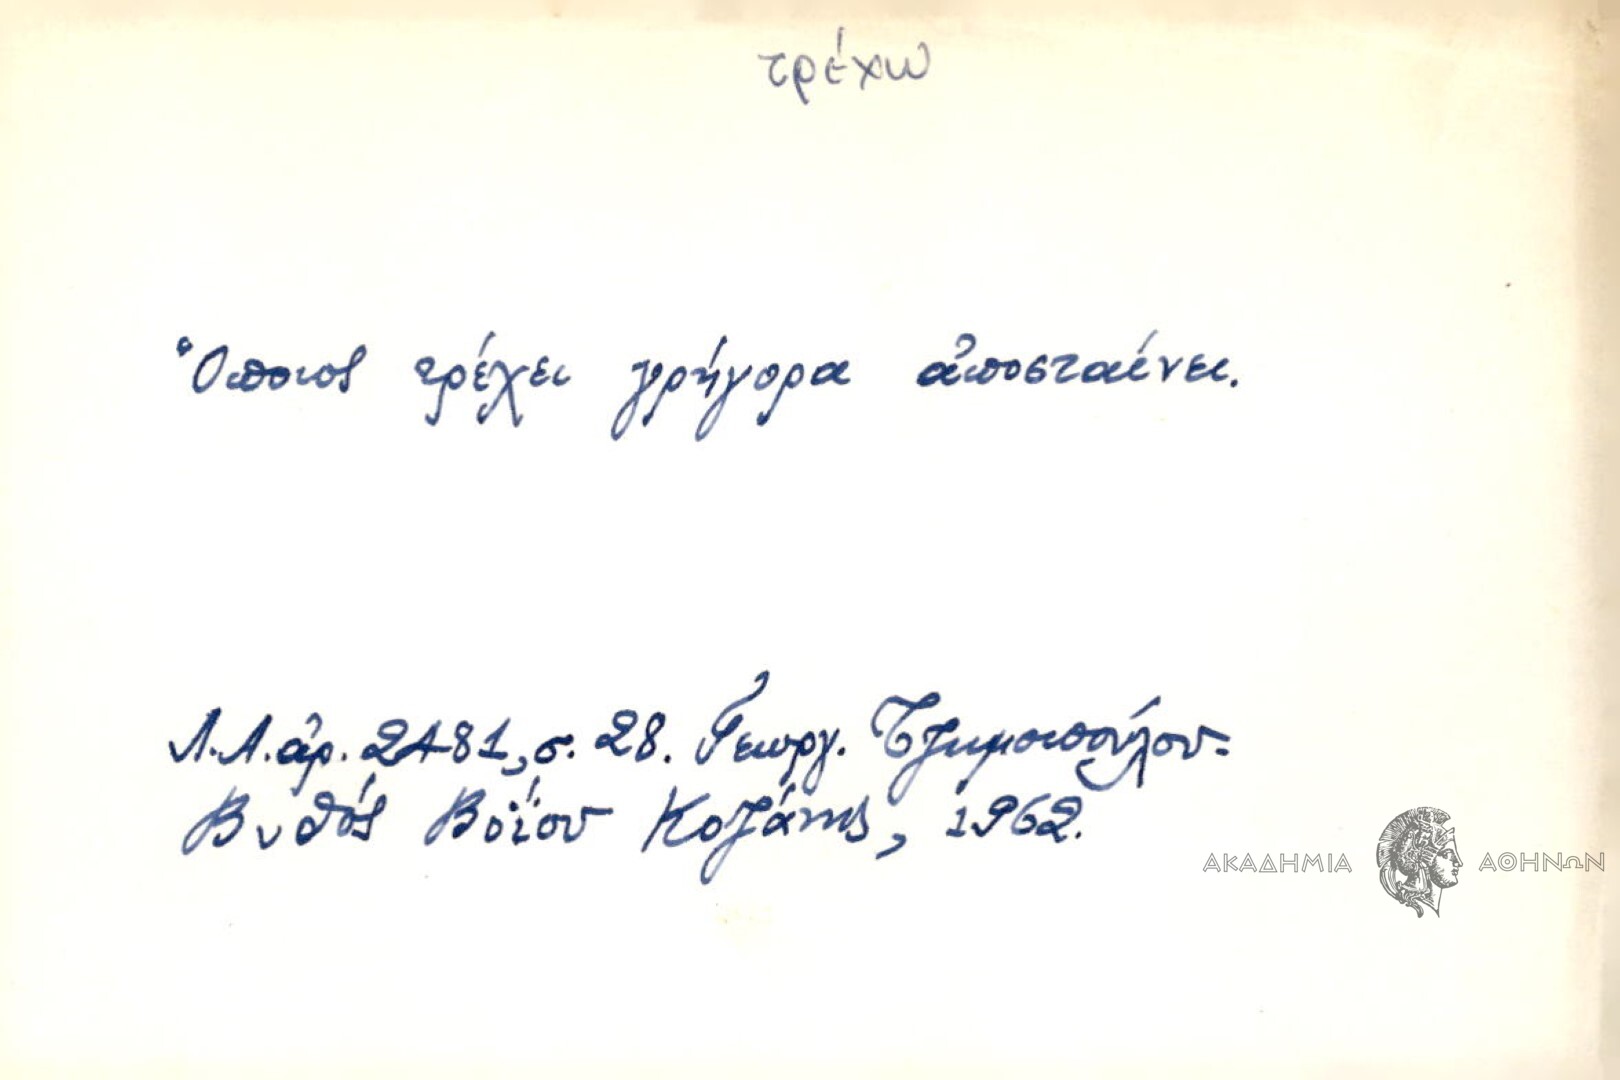 τρέχω
Ὅποιος τρέχει γρήγορα ἀποσταίνει.
Λ.Α. ἀρ. 2481, σ. 28. Γεωργ. Τζημοπούλου-
Βυθός Βοΐου Κοζάνης, 1962.
ΑΚΑΔΗΜΙΑ ΑΘΗΝΩΝ